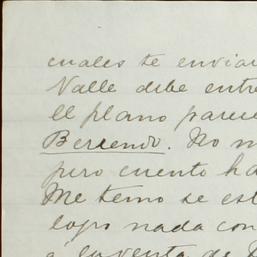 cuales te enviar
Valle debe entre
El plano parece
Berrendo. No m
pero cuento ha
Me temo se est
lapo nada con
a la venta de